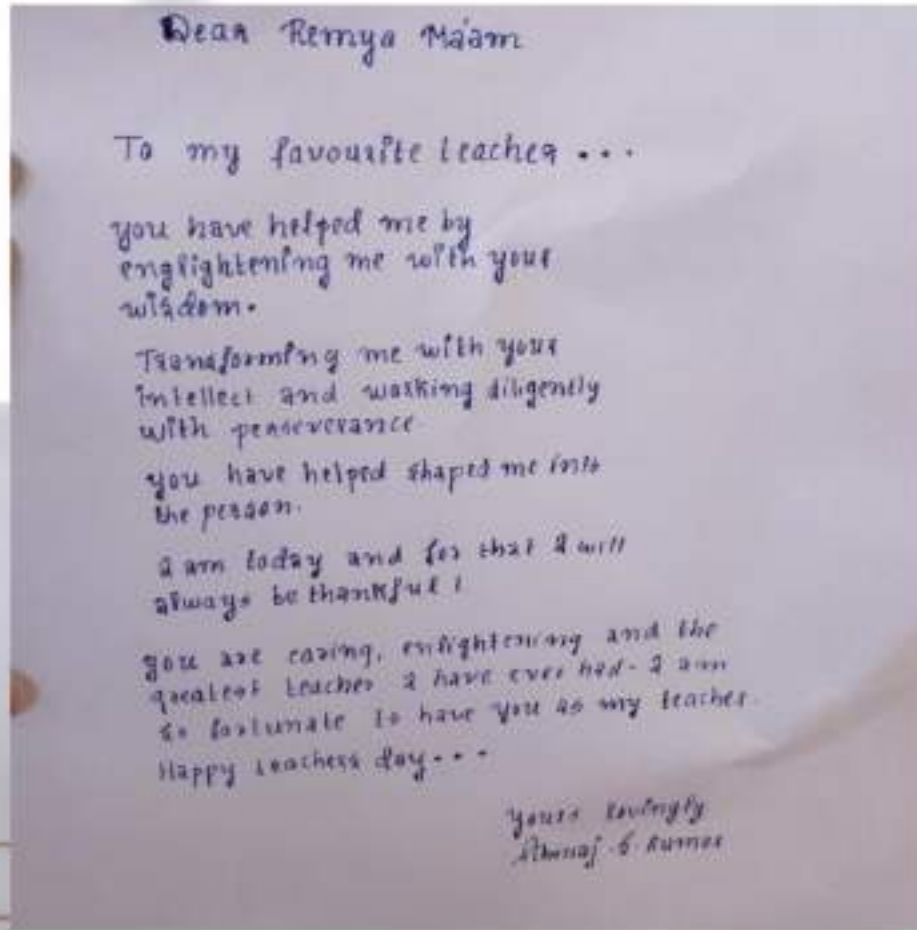 Dear Remya Ma'am
To my favourite teacher ...
you have helped me by
englightening me with your
wisdom.
Transforming me with your
intellect and working diligently
with perseverance
you have helped shaped me into
the person.
I am today and for that I will
always be thankful !
you are caring, enlightening and the
greatest teacher I have ever had. I am
so fortunate to have you as my teacher.
Happy teachers day...
yours lovingly
S. Kumar